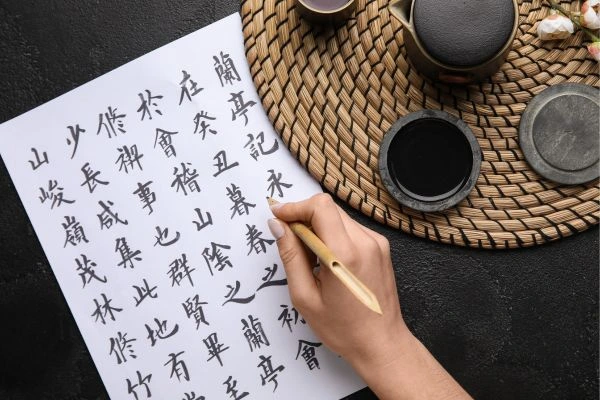 蘭亭記永
在癸丑暮春之初會
於會稽山陰之蘭亭
修禊事也群賢畢至
少長咸集此地有
山峻嶺茂林修竹